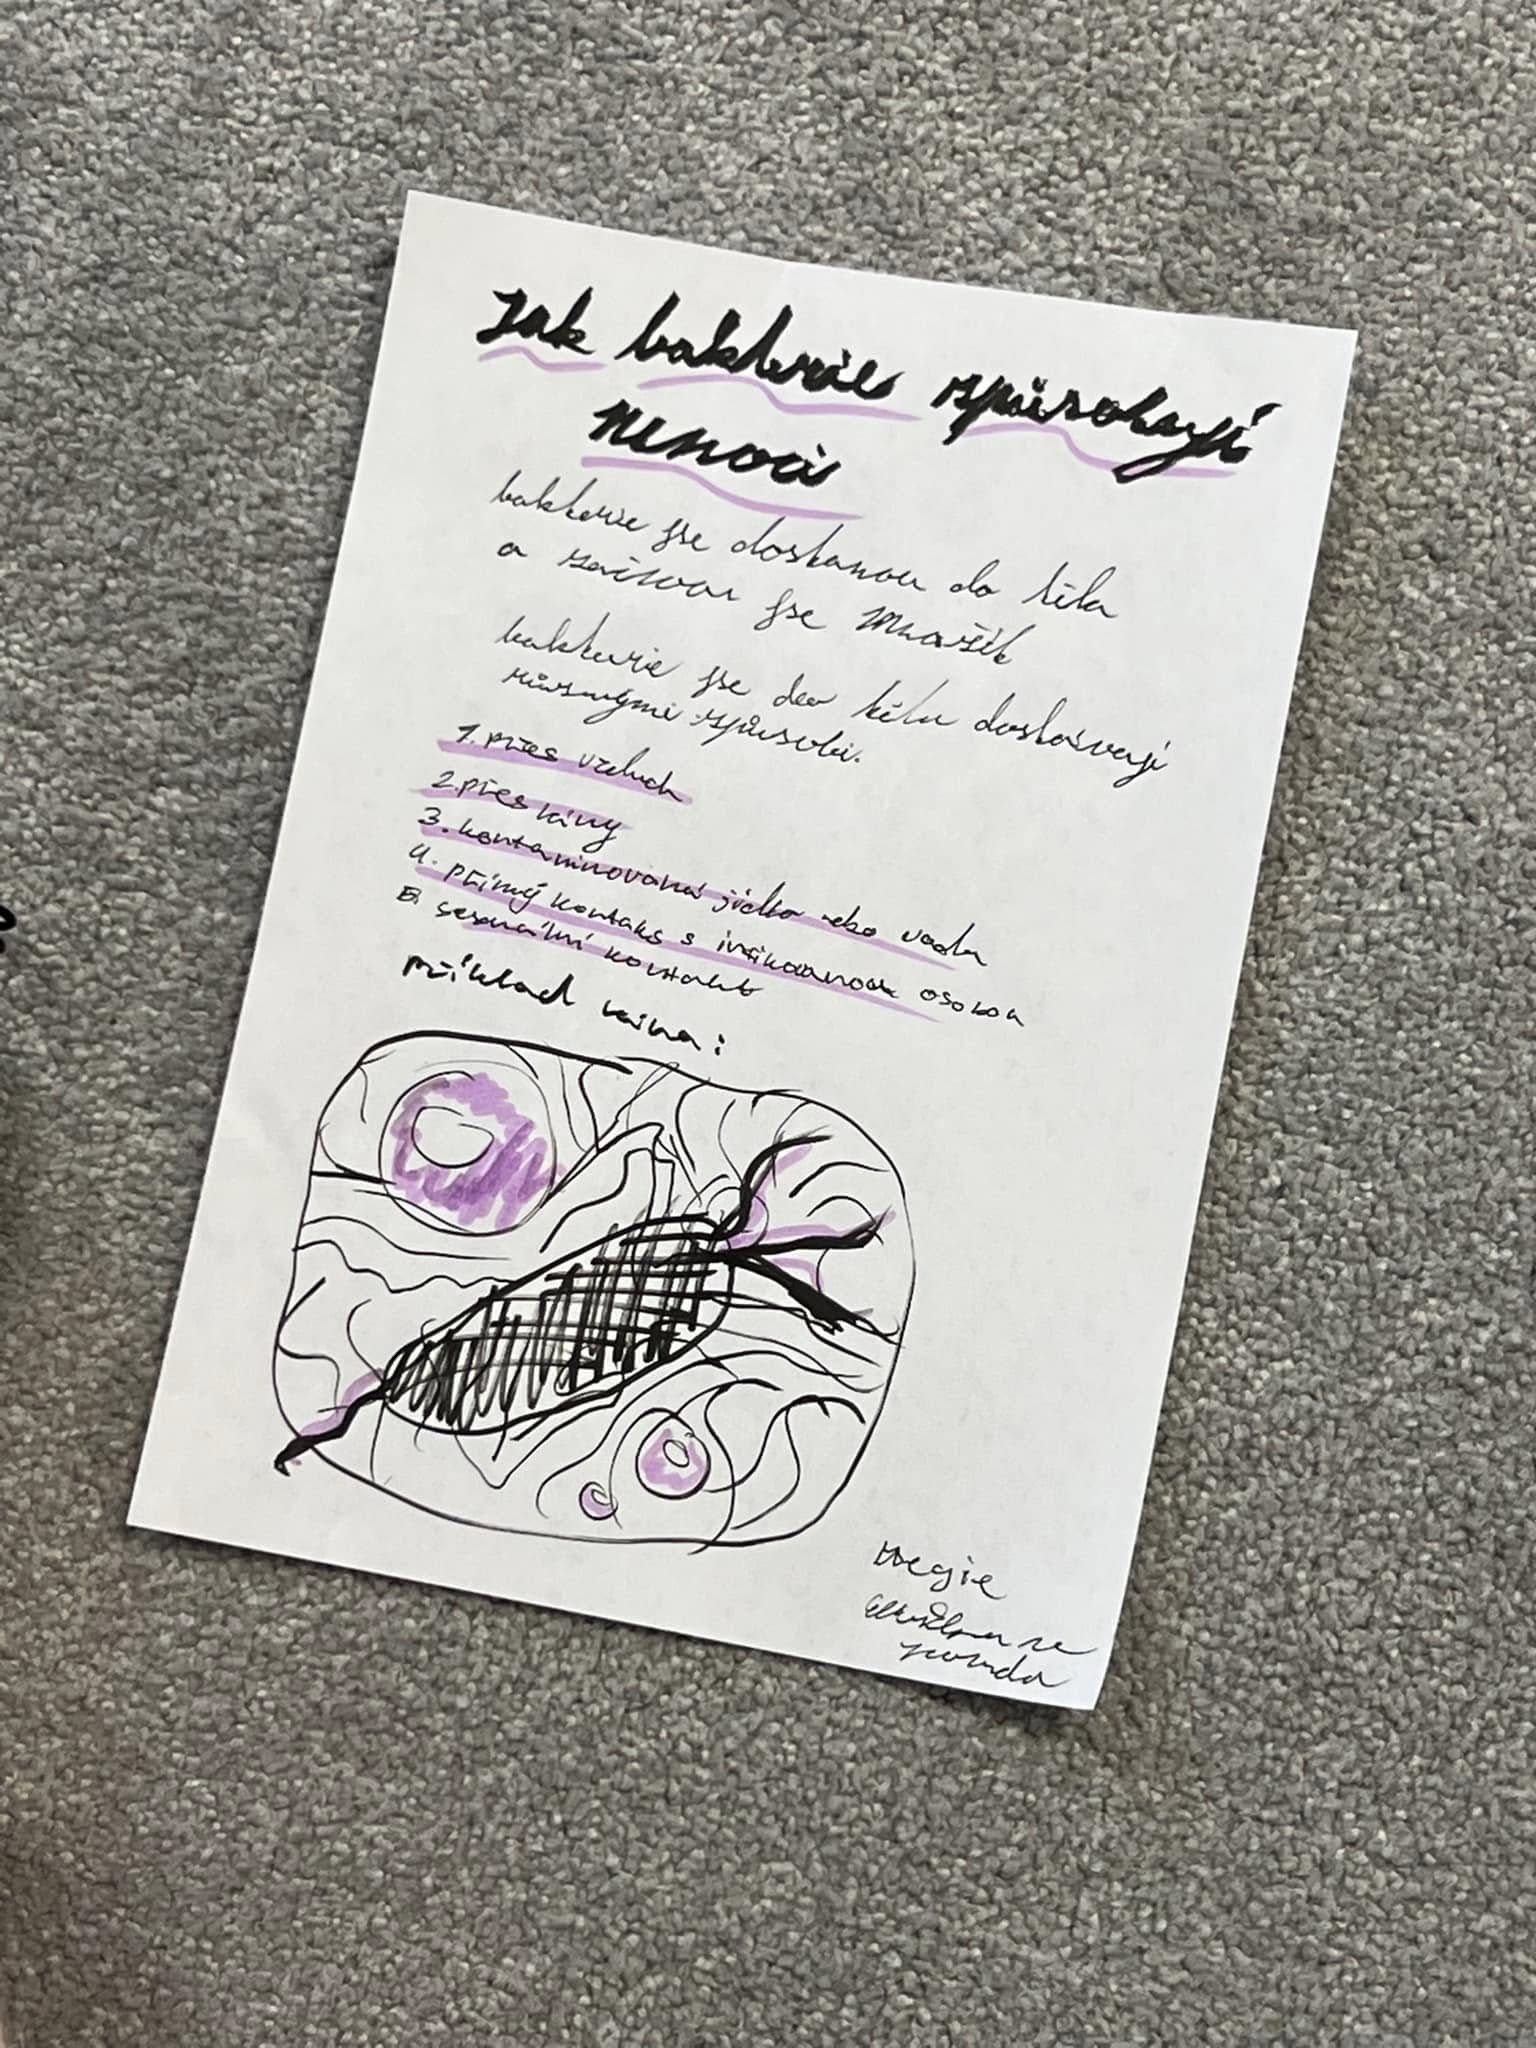 Jak bakterie způsobují
nemoci
bakterie se dostanou do těla
a začnou se množit
bakterie se do těla dostávají
různými způsobi.
1. přes vzduch
2. přes rány
3. kontaminované jídlo nebo voda
4. přímý kontakt s infikovanou osobou
5. sexuální kontakt
příklad